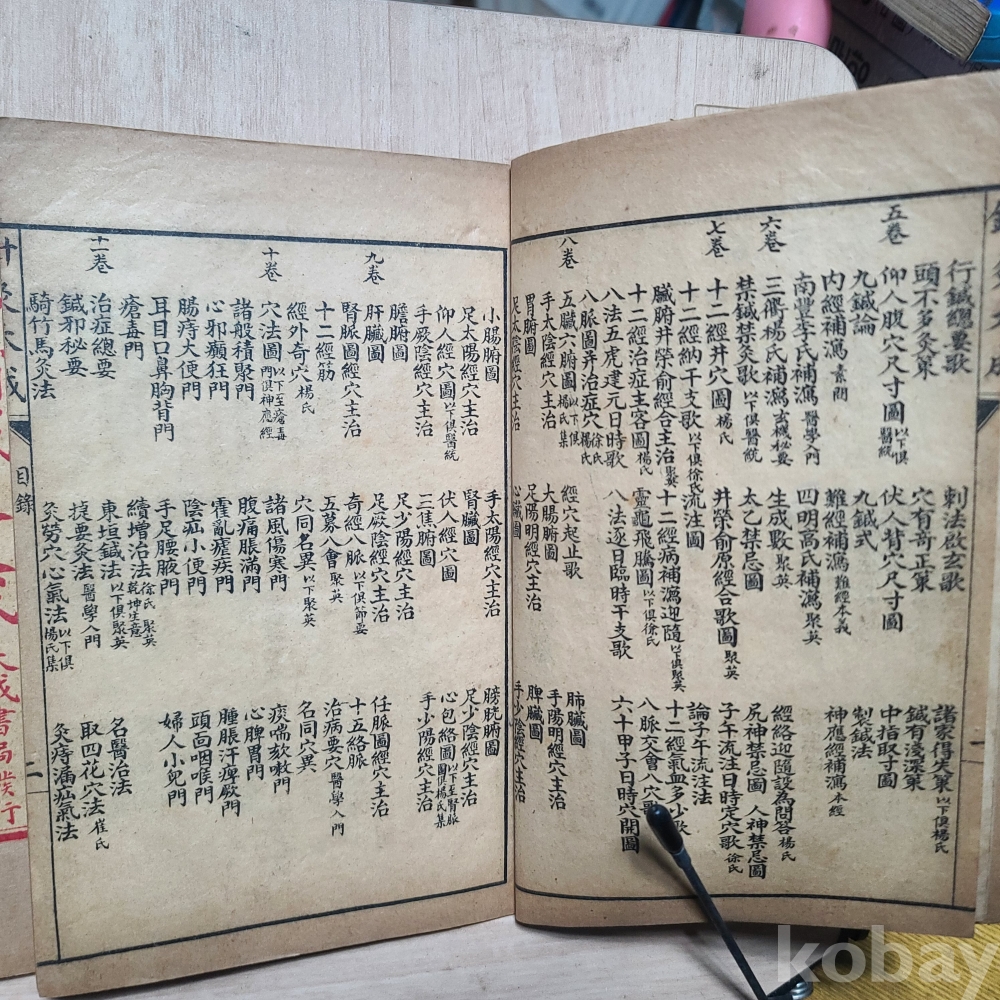 行鍼總要歌 刺法啟玄歌 諸家得失策 以下俱楊氏
頭不多灸策 穴有奇正策 鍼有淺深策
五卷 仰人腹穴尺寸圖 以下俱醫統 伏人背穴尺寸圖 中指取寸圖
九鍼論 九鍼式 製鍼法
內經補瀉 素問 難經補瀉 難經本義 神應經補瀉 本經
南豐李氏補瀉 醫學入門 四明高氏補瀉 聚英
六卷 三衢楊氏補瀉 玄機秘要 生成數 聚英 經絡迎隨設為問答 楊氏
禁鍼禁灸歌 以下俱醫統 太乙禁忌圖 尻神禁忌圖 人神禁忌圖
七卷 十二經井穴圖 楊氏 井滎俞原經合歌圖 聚英 子午流注日時定穴歌 徐氏
十二經納干支歌 以下俱徐氏 流注圖 論子午流注法
臟腑井滎俞經合主治 聚英 十二經病補瀉迎隨 以下俱聚英 十二經氣血多少歌
十二經治症主客圖 楊氏 靈龜飛騰圖 以下俱徐氏 八脈交會八穴歌
八法五虎建元日時歌 八法逐日臨時干支歌 六十甲子日時穴開圖
八脈圖并治症穴 徐氏 楊氏
八卷 五臟六腑圖 以下俱楊氏集 經穴起止歌 肺臟圖
手太陰經穴主治 大腸腑圖 手陽明經穴主治
胃腑圖 足陽明經穴主治 脾臟圖
足太陰經穴主治 心臟圖 手少陰經穴主治
小腸腑圖 手太陽經穴主治 膀胱腑圖
足太陽經穴主治 腎臟圖 足少陰經穴主治
仰人經穴圖 以下俱醫統 伏人經穴圖 心包絡圖 以下至腎脈圖俱楊氏集
手厥陰經穴主治 三焦腑圖 手少陽經穴主治
膽腑圖 足少陽經穴主治
九卷 肝臟圖 足厥陰經穴主治 任脈圖經穴主治
腎脈圖經穴主治 奇經八脈 以下俱節要 十五絡脈
十二經筋 五募八會 聚英 治病要穴 醫學入門
經外奇穴 楊氏 穴同名異 以下聚英 名同穴異
十卷 穴法圖 以下至瘡毒門俱神應經 諸風傷寒門 痰喘欬嗽門
諸般積聚門 腹痛脹滿門 心脾胃門
心邪癲狂門 霍亂瘧疾門 腫脹汗痺厥門
腸痔大便門 陰疝小便門 頭面咽喉門
耳目口鼻胸背門 手足腰腋門 婦人小兒門
瘡毒門 續增治法 徐氏 聚英 乾坤生意
十一卷 治症總要 東垣鍼法 以下俱聚英 名醫治法
鍼邪秘要 捷要灸法 醫學入門 取四花穴法 崔氏
騎竹馬灸法 灸勞穴心氣法 以下俱楊氏集 灸痔漏疝氣法
目錄
二
大成書局發行
kobay